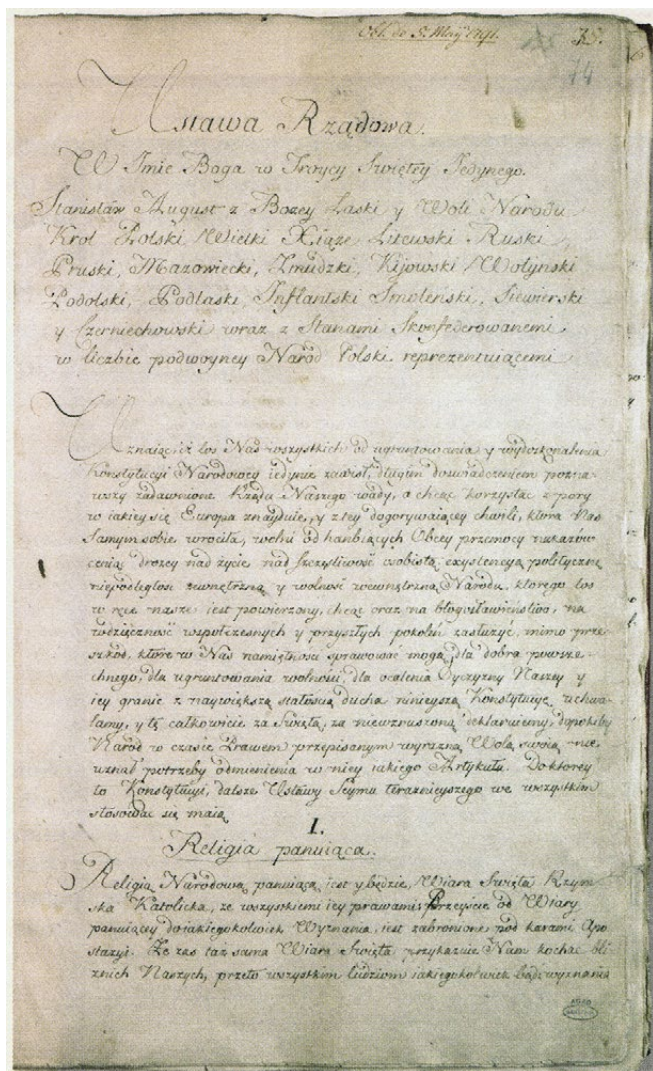 Obl. de 5. Maÿ 1791.
14
Ustawa Rządowa.
W Imie Boga w Troycy Swiętey Iedynego.
Stanisław August z Bozey Łaski y Woli Narodu
Krol Polski Wielki Xiąze Litewski Ruski,
Pruski, Mazowiecki, Zmudzki, Kijowski Wołynski
Podolski, Podlaski, Inflantski Smolenski, Siewierski
y Czerniechowski wraz z Stanami Skonfederowanemi
w liczbie podwoyney Narod Polski reprezentuiącemi
Uznaiąc, iż los Nas wszystkich od ugruntowania y wydoskonalenia
Konstytucyi Narodowey iedynie zawisł, długim doswiadczeniem pozna-
wszy zadawnione Rządu Naszego wady, a chcąc korzystac z pory
w iakiey się Europa znayduie, y z tey dogorywaiącey chwili, ktora Nas
samym sobie wrociła, wolni od hanbiących Obcey przemocy nakazow
ceniąc drozey nad życie nad szczęsliwosc osobistą, exystencyą polityczną
niepodległosc zewnętrzną y wolnosc wewnętrzną Narodu, ktorego los
w ręce nasze iest powierzony, chcąc oraz na błogosławienstwo, na
wdzięcznosc wspołczesnych y przyszłych pokolen zasłuzyc, mimo prze-
szkod, ktore w Nas namiętnosci sprawowac mogą, dla dobra powsze-
chnego, dla ugruntowania wolnosci, dla ocalenia Oyczyzny Naszey y
iey granic z naywiększą stałoscią ducha ninieyszą Konstytucyę uchwa-
lamy, y tę całkowicie za swiętą, za niewzruszoną deklaruiemy, dopokiby
Narod w czasie Prawem przepisanym wyrazną Wolą swoią nie
uznał potrzeby odmienienia w niey iakiego Artykułu. Do ktorey
to Konstytucyi, dalsze Ustawy Seymu teraznieyszego we wszystkim
stosowac się maią
1.
Religia panuiąca.
Religią Narodową panuiącą iest y będzie Wiara Swięta Rzym-
ska Katolicka, ze wszystkiemi iey prawami. Przeyscie od Wiary
panuiącey do iakiegokolwiek Wyznania, iest zabronione pod karami Apo-
stazyi. Ze zas taż sama Wiara Swięta przykazuie Nam kochac bli-
znich Naszych, przeto wszystkim ludziom iakiegokolwiek bądz wyznania